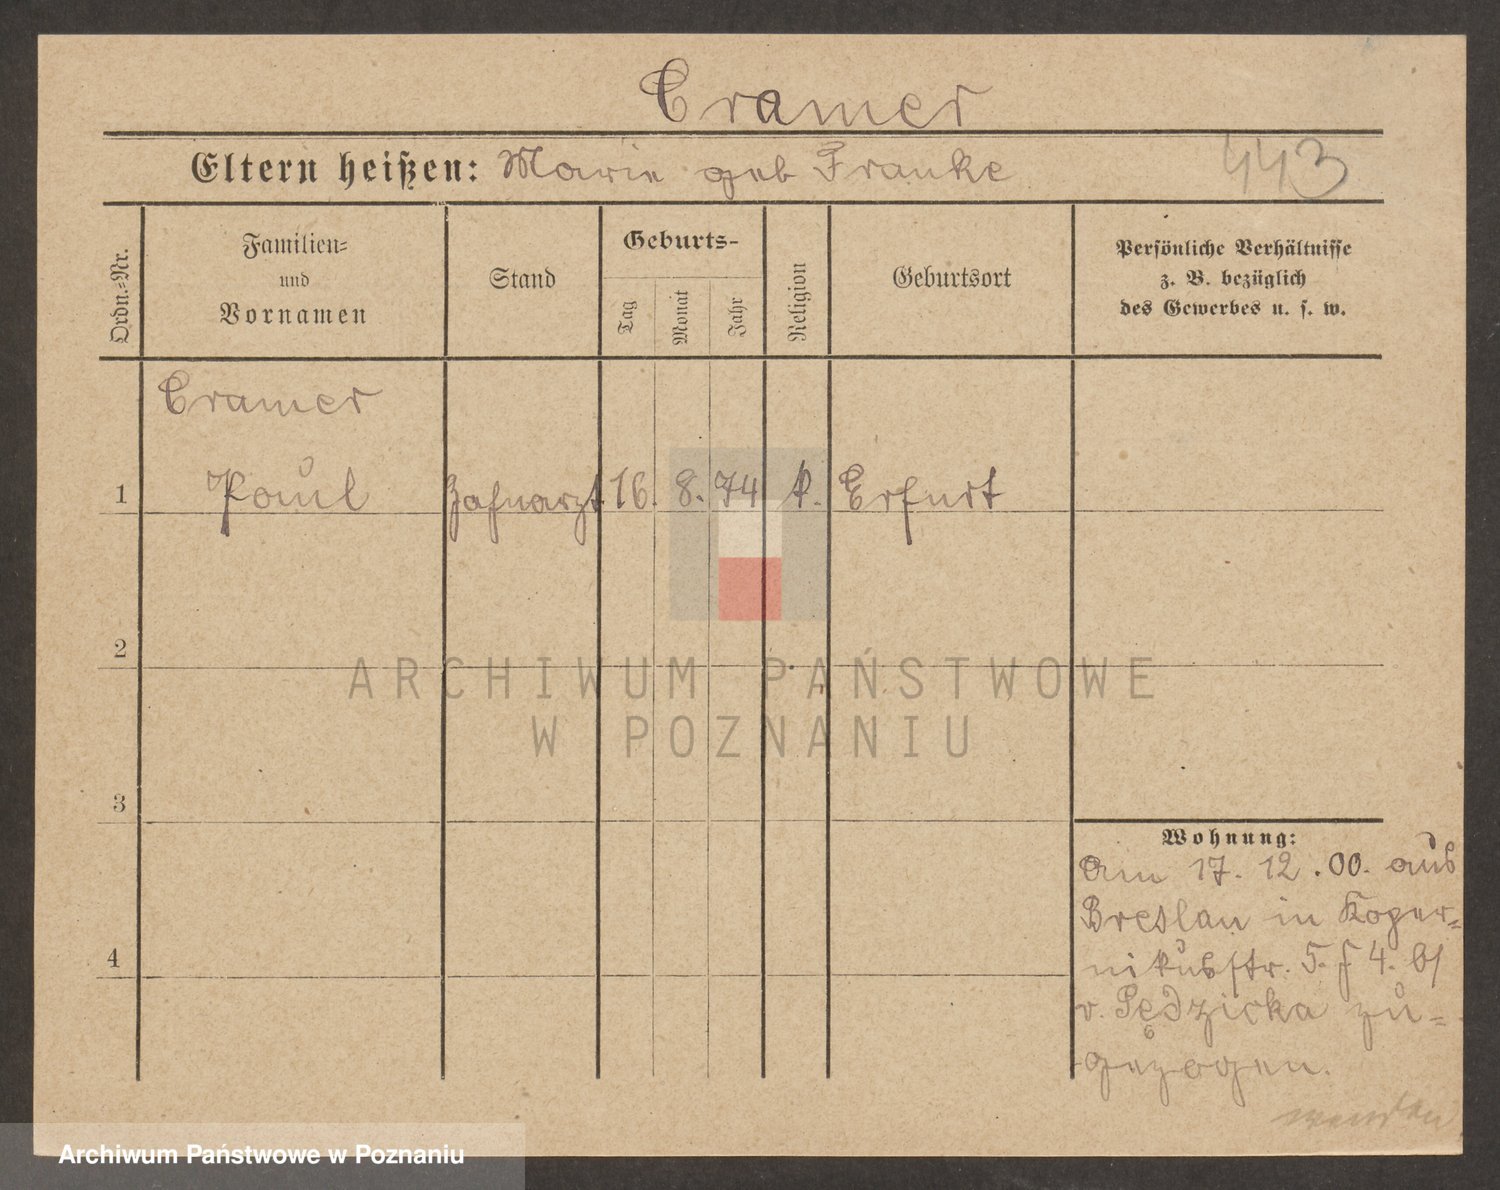 Cramer
Eltern heißen: Marie geb Franke 443
Ordn.=Nr.
Familien=
und
Vornamen
Stand
Geburts-
Tag
Monat
Jahr
Religion
Geburtsort
Persönliche Verhältnisse
z. B. bezüglich
des Gewerbes u. s. w.
Cramer
1 Paul Zahnarzt 16. 8. 74 Erfurt
2
3
4
Wohnung:
Am 17. 12. 00. aus
Breslau in Koper=
nikusstr. 5. 4. b/
v. Pędzicka zu=
gezogen.
wenden
ARCHIWUM PAŃSTWOWE
W POZNANIU
Archiwum Państwowe w Poznaniu